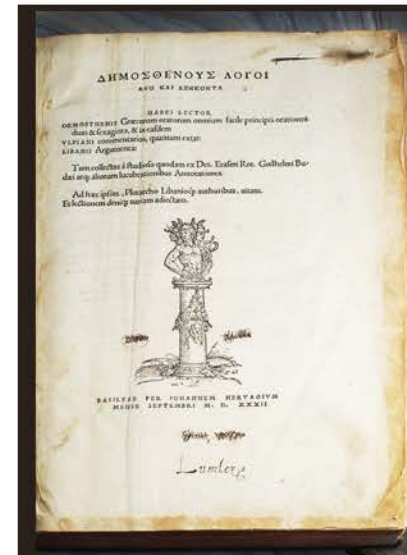 ΔΗΜΟΣΘΕΝΟΥΣ ΛΟΓΟΙ
ΔΥΟ ΚΑΙ ΕΞΗΚΟΝΤΑ
HABES LECTOR,
DEMOSTHENIS Græcorum oratorum omnium facile principis orationes
duas & sexaginta, & in easdem
VLPIANI commentarios, quantum extat:
LIBANII Argumenta:
Tum collectas à studioso quodam ex Des. Erasmi Rot. Guilhelmi Bu-
dæi atq; aliorum lucubrationibus Annotationes.
Ad hæc ipsius, Plutarcho Libanioq; authoribus, uitam.
Et lectionem deniq; uariam adiectam.
BASILEAE PER IOHANNEM HERVAGIVM
MENSE SEPTEMBRI M. D. XXXII
Lumley